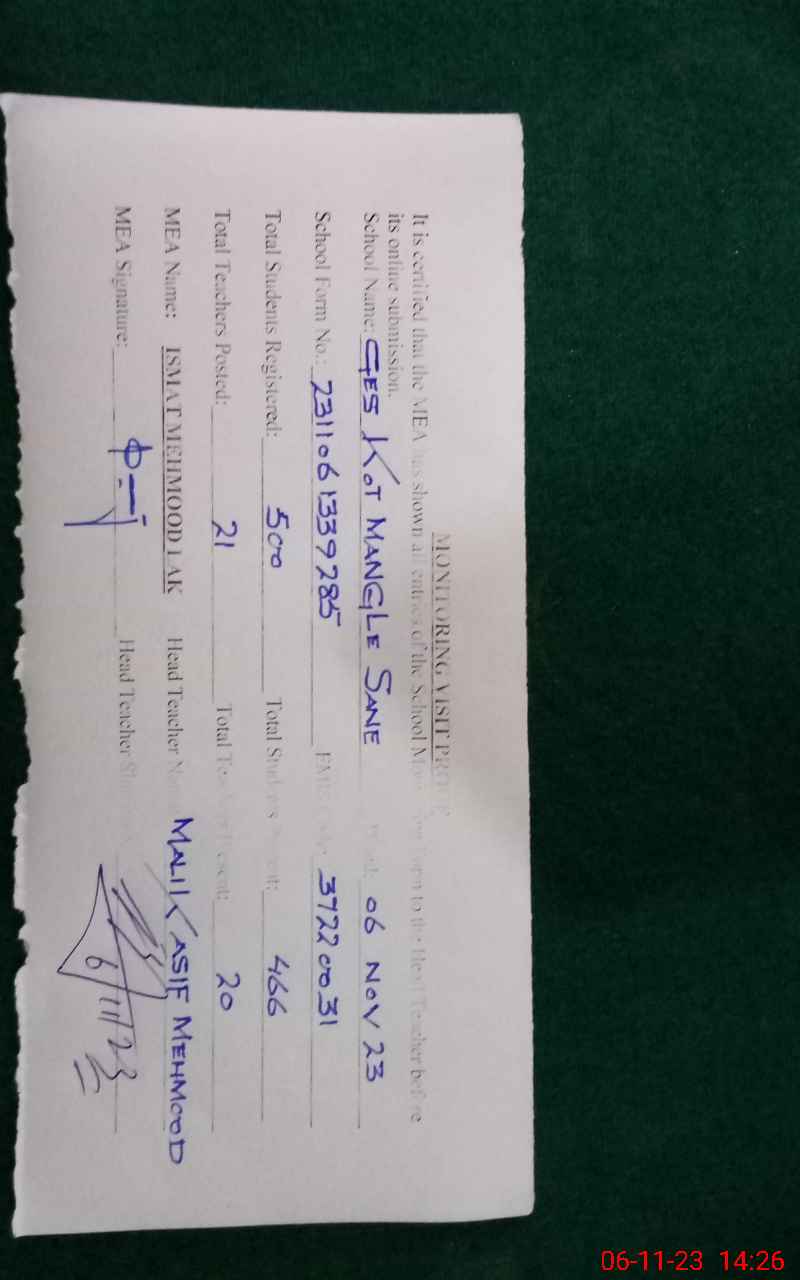 MONITORING VISIT
It is certified that the MEA has shown all entries of the School to the Head Teacher before
its online submission.
School Name: GES KOT MANGLE SANE 06 NOV 23
School Form No.: 231106133928 5 EMIS Code: 37220031
Total Students Registered: 500 Total Students Present: 466
Total Teachers Posted: 21 Total Teachers Present: 20
MEA Name: ISMAT MEHMOOD LAK Head Teacher Name MALIK ASIF MEHMOOD
MEA Signature: Head Teacher
6/11/23
06-11-23 14:26